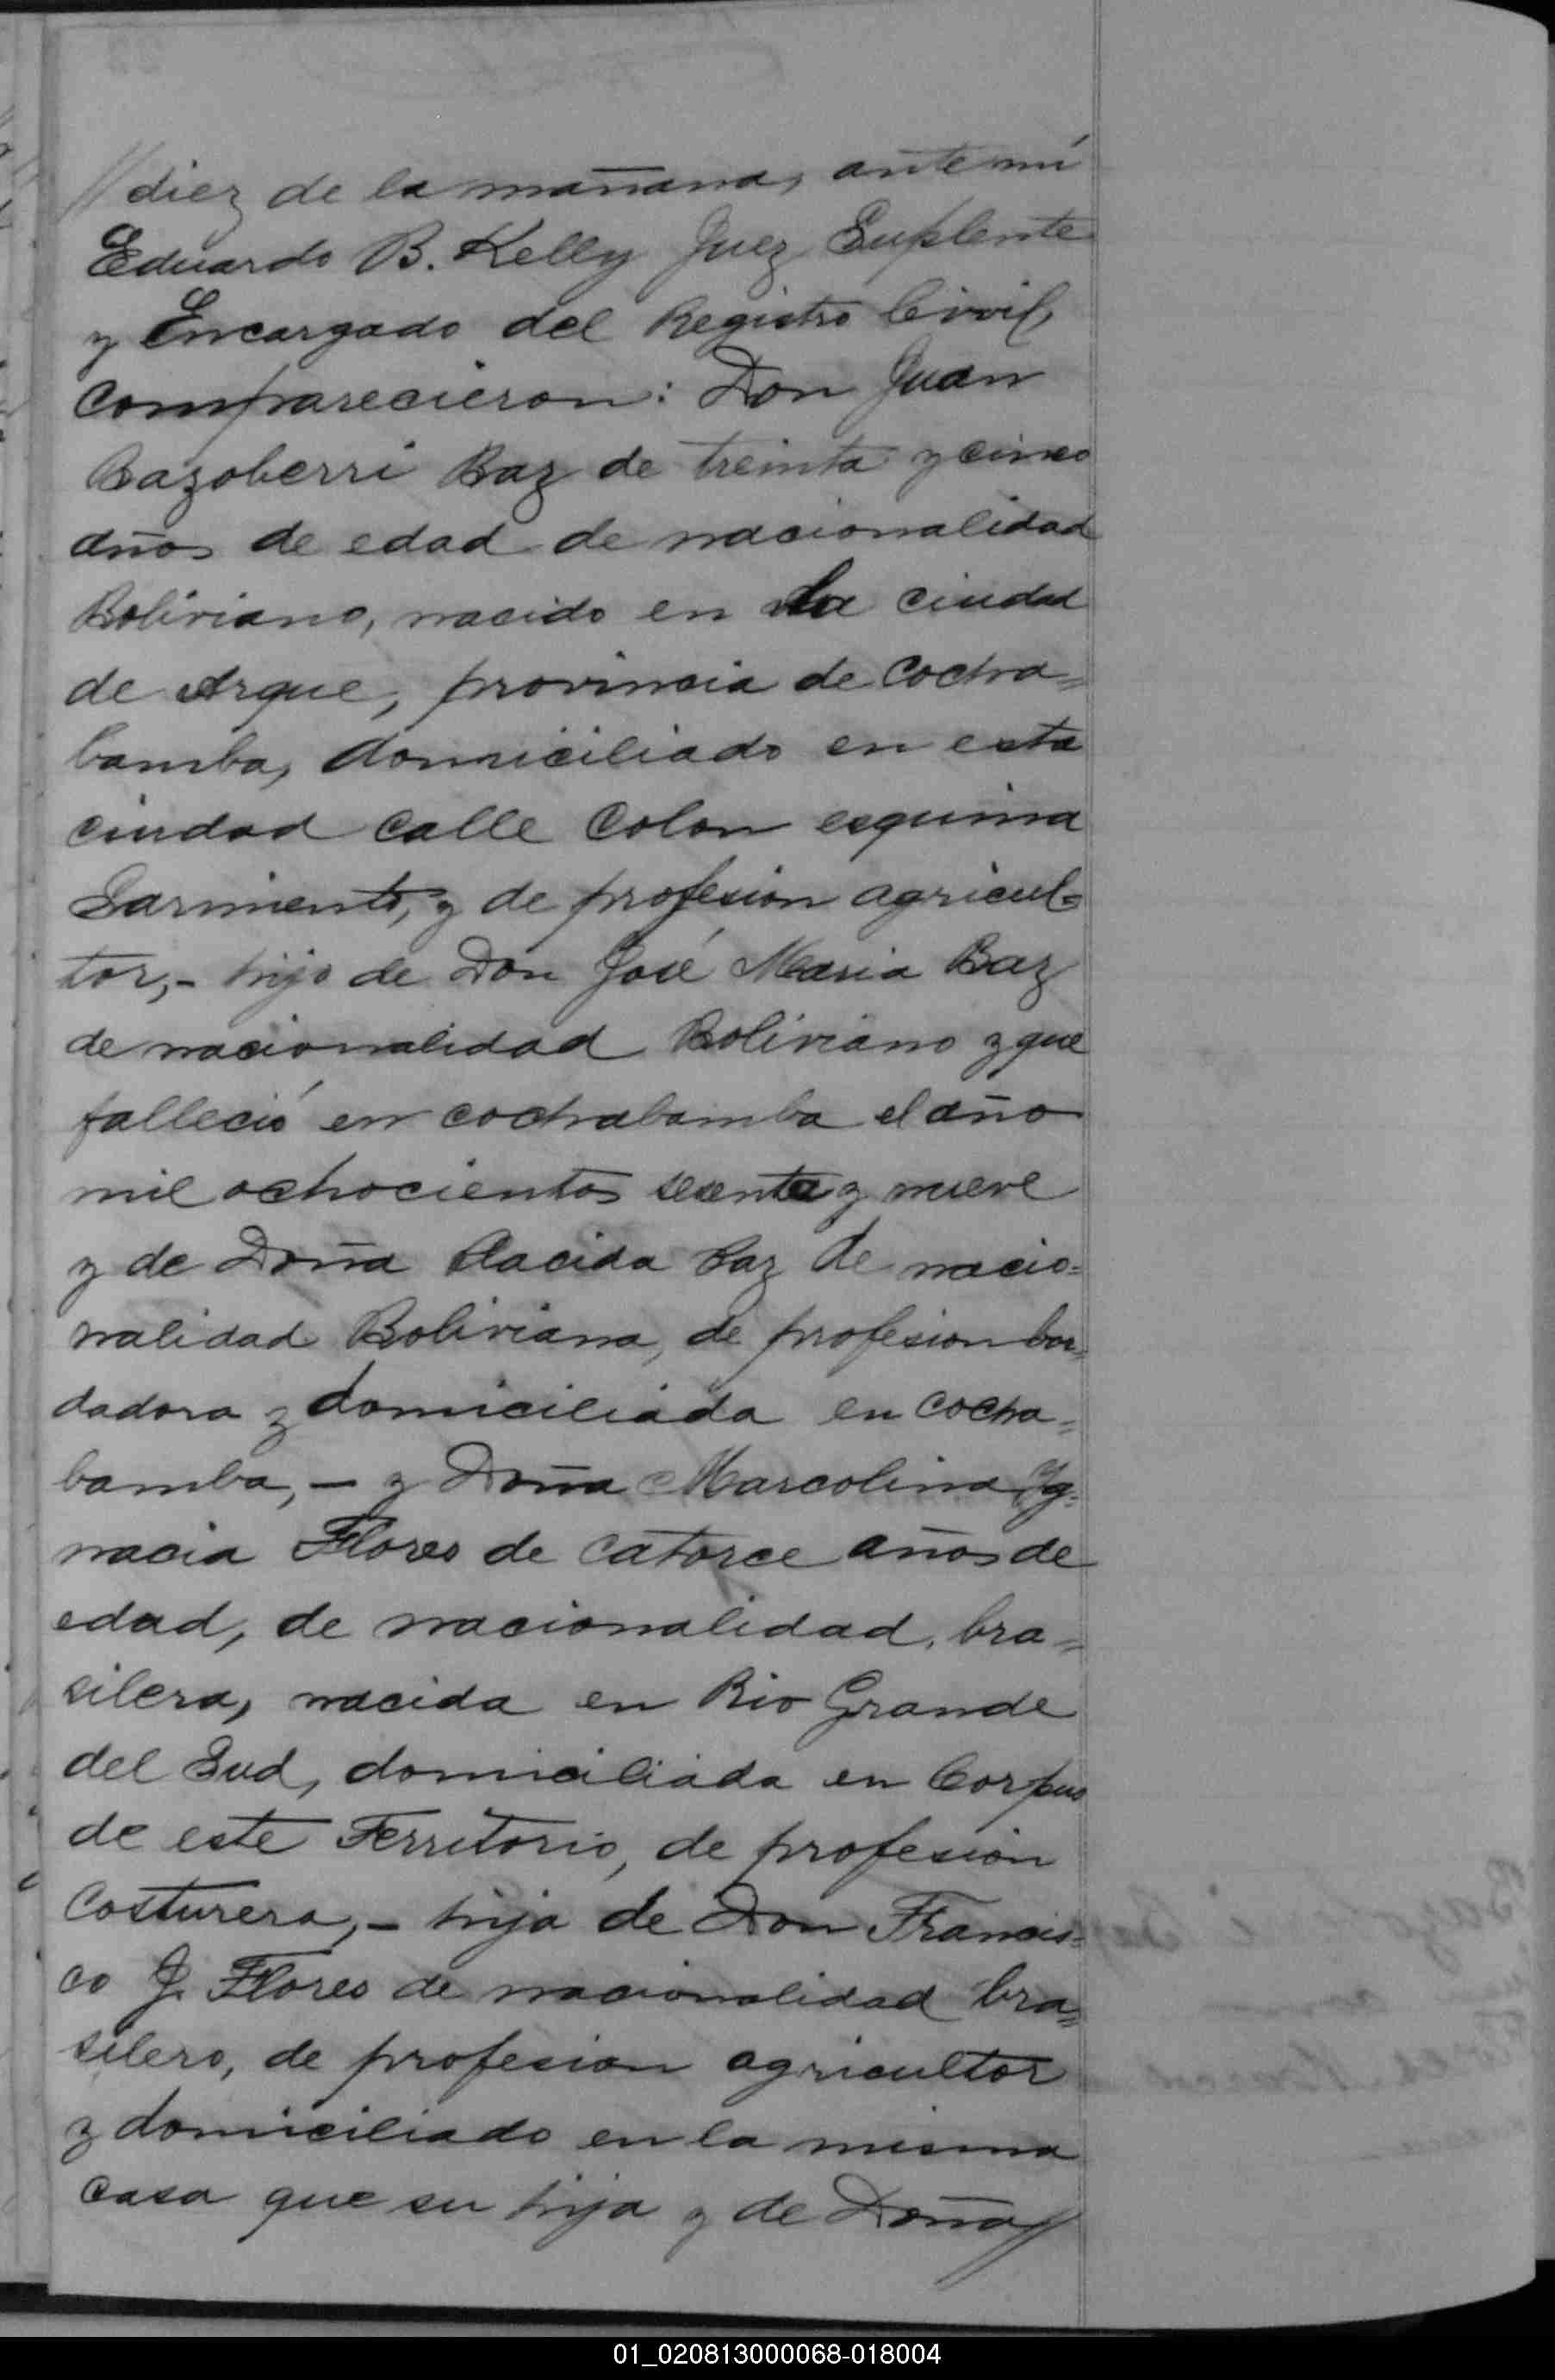 // diez de la mañana, ante mí
Eduardo B. Kelly Juez Suplente
y Encargado del Registro Civil,
comparecieron: Don Juan
Bazoberri Baz de treinta y cinco
años de edad de nacionalidad
Boliviano, nacido en la ciudad
de Arque, provincia de Cocha=
bamba, domiciliado en esta
ciudad calle Colon esquina
Sarmiento, y de profesion agricul=
tor,- hijo de Don José Maria Baz
de nacionalidad Boliviano y que
falleció en cochabamba el año
mil ochocientos sesenta y nueve
y de Doña Placida Baz de nacio=
nalidad Boliviana, de profesion bor=
dadora y domiciliada en Cocha=
bamba,- y Doña Marcolina Yg=
nacia Flores de catorce años de
edad, de nacionalidad, bra=
silera, nacida en Rio Grande
del Sud, domiciliada en Corpus
de este Territorio, de profesion
Costurera,- hija de Don Francis=
co J. Flores de nacionalidad bra=
silero, de profesion agricultor
y domiciliado en la misma
casa que su hija y de Doña//
01_020813000068-018004